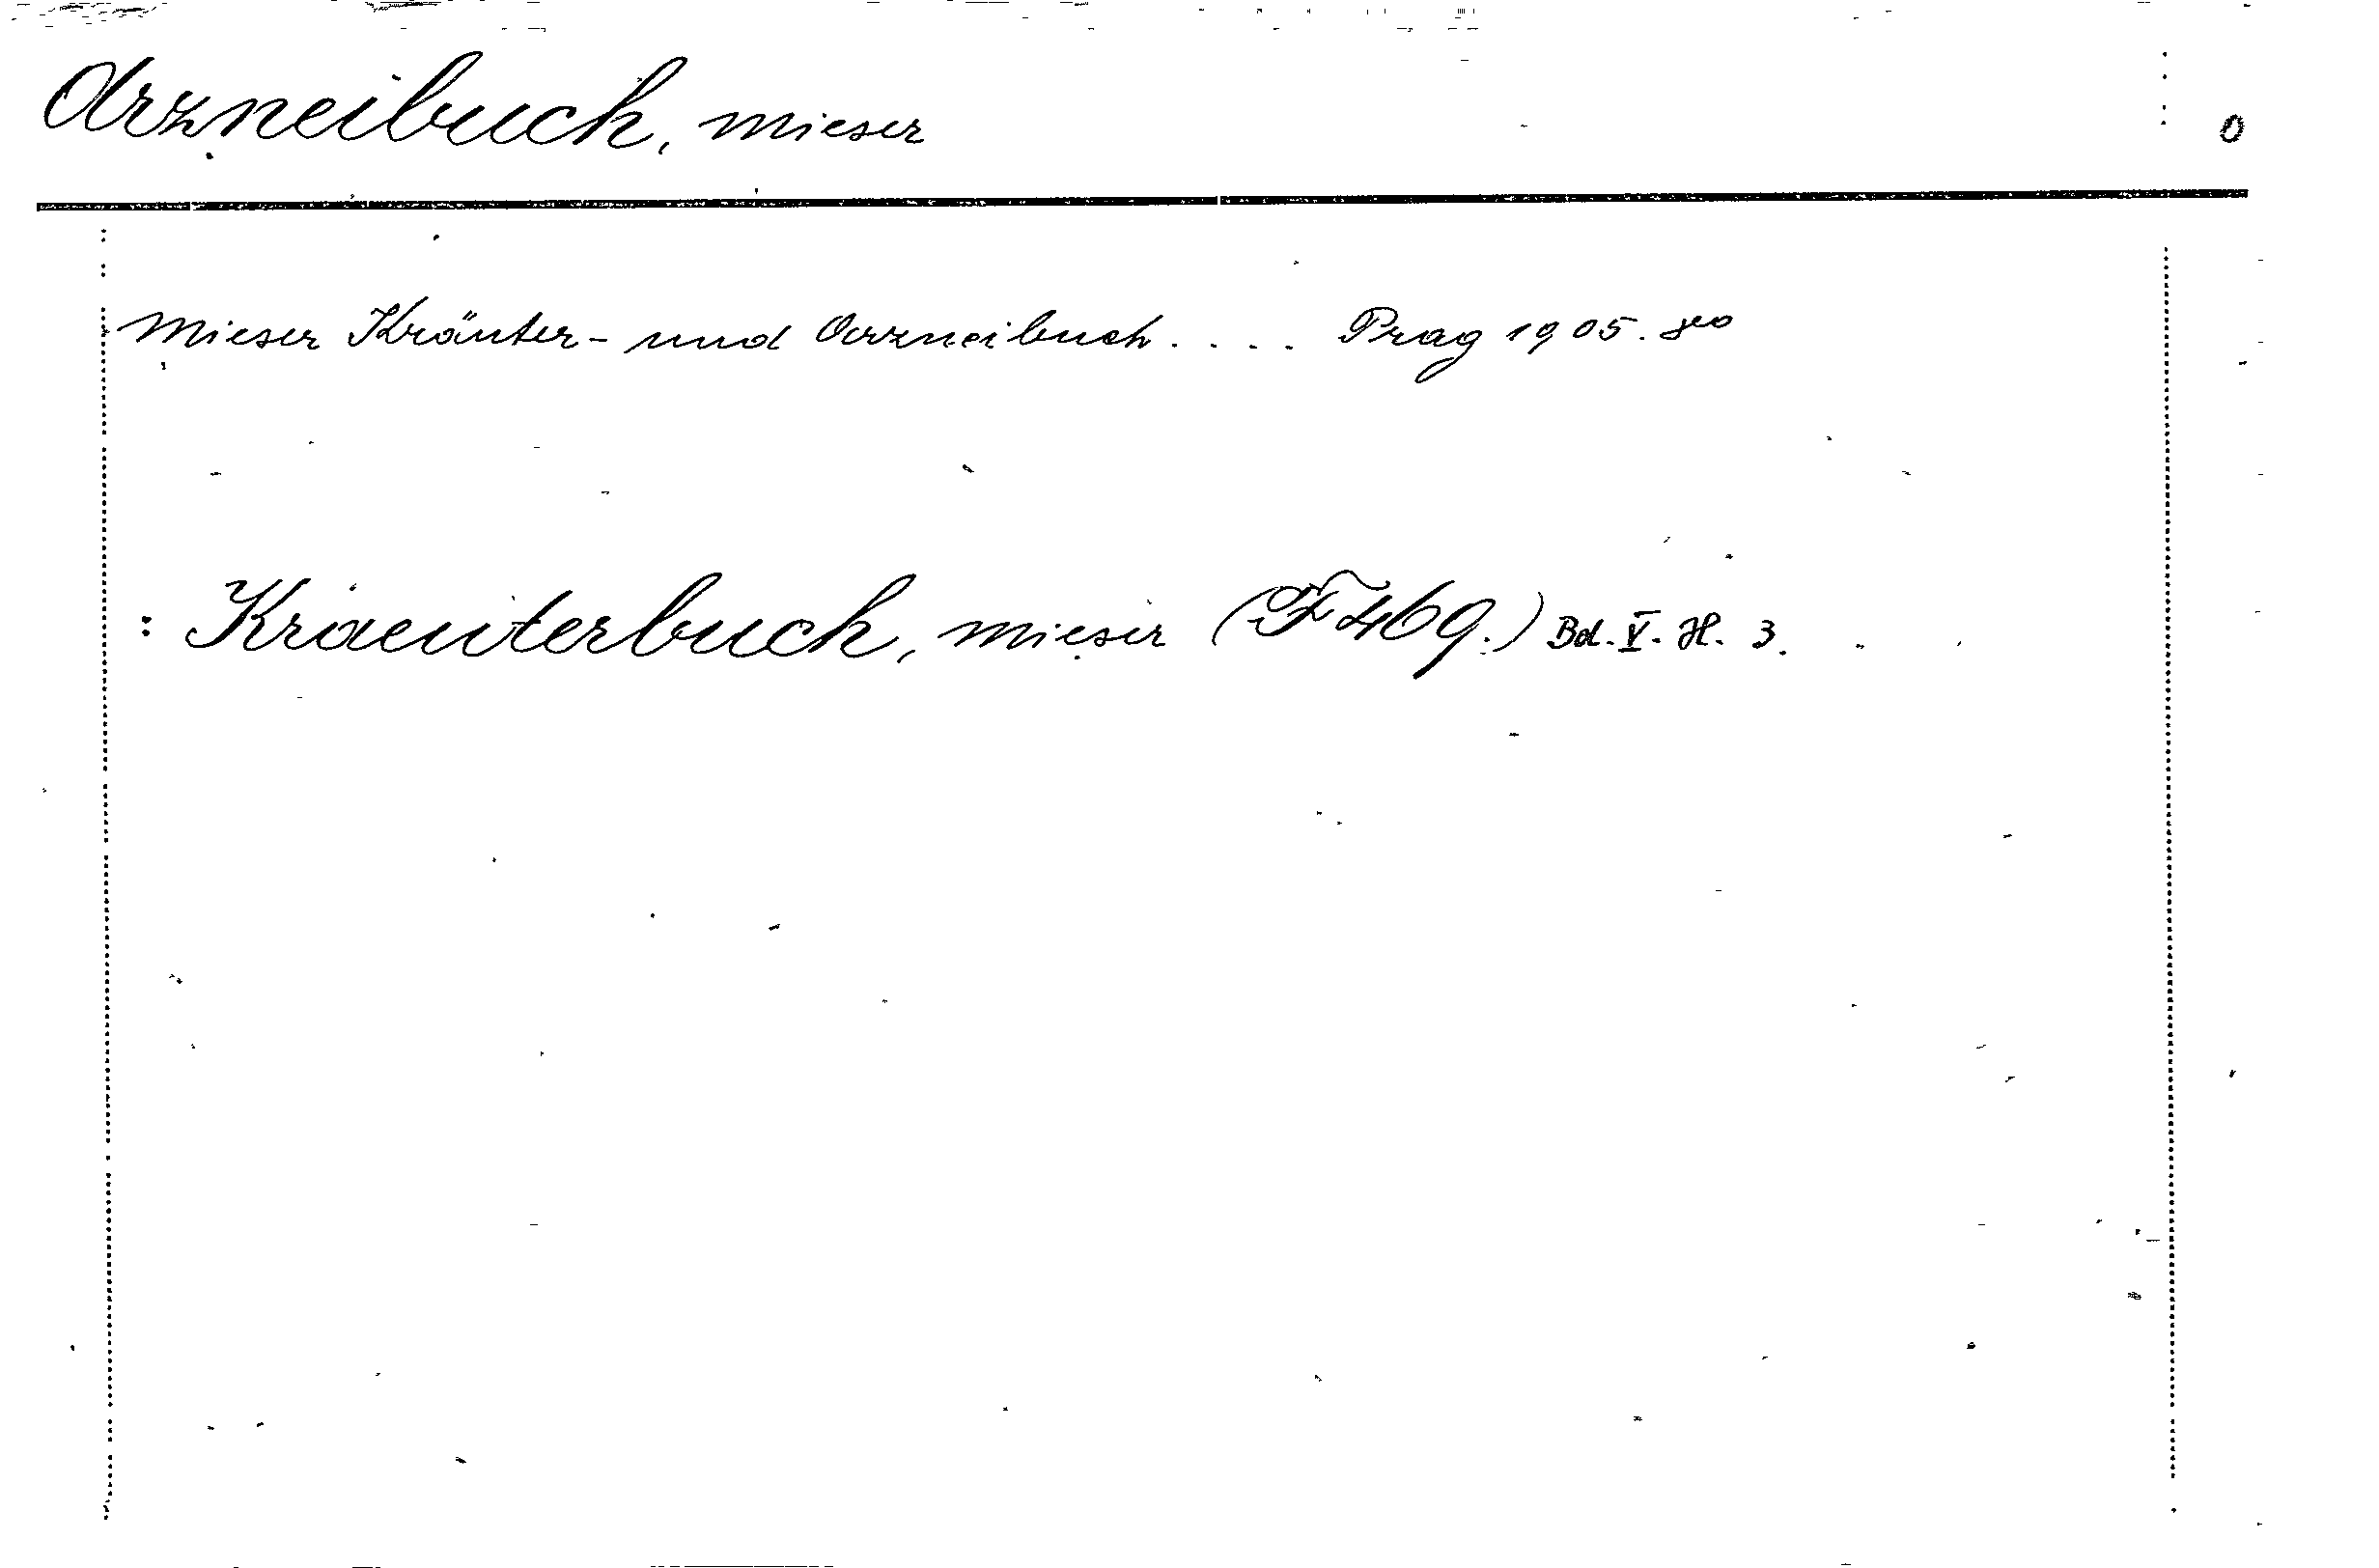 Arzneibuch, Mieser 0
Mieser Kräuter- und Arzneibuch. . . . Prag 1905. 8vo
: Kraeuterbuch, Mieser (F 469.) Bd. V. H. 3.